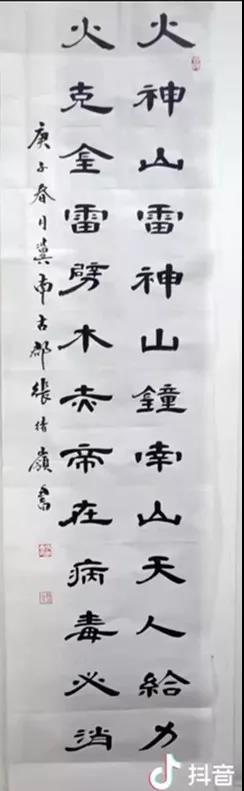 火神山雷神山鐘南山天人給力
火克金雷劈木赤帝在病毒必消
庚子春月冀南古郡張嶺書
抖音